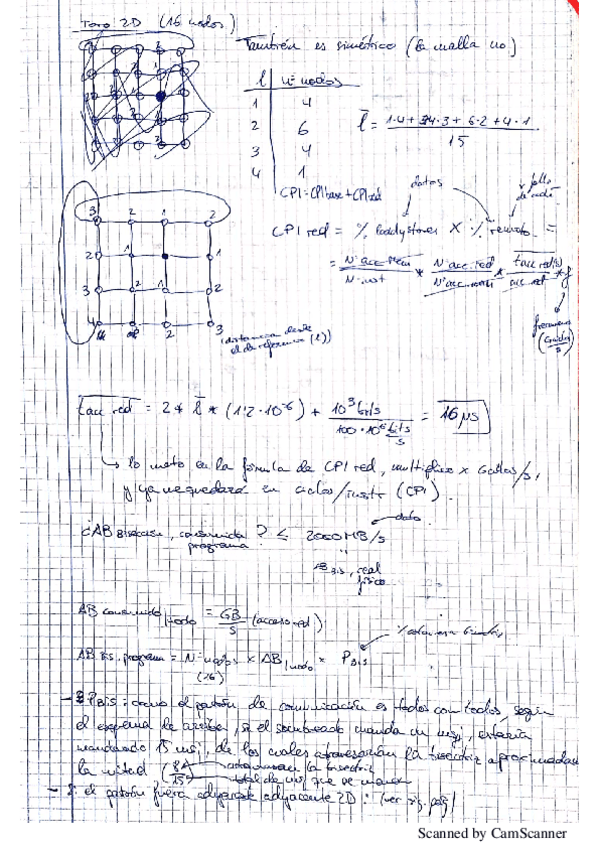 Toro 2D (16 nodos)
También es simétrico (la malla no)
l | nº nodos
1 4
2 6
3 4
4 1
l = 1·4 + 4·3 + 6·2 + 4·1
15
CPI = CPI base + CPI red
datos
fallo
CPI red = % load y stores × % remoto =
= Nº acc. Mem * Nº acc. red * tacc red(s) * f
Nº inst Nº acc. mem acc. red
3 2 1 2
2 1 1
3 2 1 2
4 2 3
(distancia desde
el de referencia (l))
tacc red = 2 * l * (1'2·10^-6) + 10^3 bits = 16 µs
100·10^6 bits
s
↳ lo meto en la fórmula de CPI red, multiplico × ciclos/s,
y ya me quedará en ciclos/instr (CPI).
dato
¿AB bisección, consumida ? ≤ 2000 MB/s
programa
AB Bis, real
físico
AB consumido|nodo = GB (acceso red)
s
AB Bis, programa = Nº nodos × AB|nodo × P Bis
(16)
- P Bis: como el patrón de comunicación es todos con todos, según
el esquema de arriba, si el sombreado manda un msj, estaría
mandando 15 msj, de los cuales atravesarían la bisectriz aproximadam
la mitad ( 8 atraviesan la bisectriz
15 total de msj que se mandan
- Si el patrón fuera adyacente adyacente 2D: (ver sig. pág)
Scanned by CamScanner